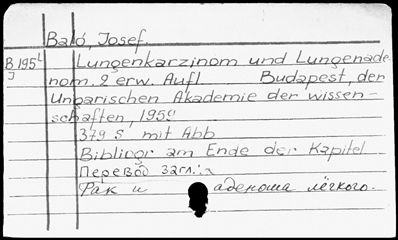 Baló, Josef.
B 195L Lungenkarzinom und Lungenade-
J nom. 2 erw. Aufl Budapest, der
Ungarischen Akademie der wissen-
schaften, 1959
379 S mit Abb
Bibliogr am Ende der Kapitel
Перевод загл.:
Рак и аденома лёгкого.